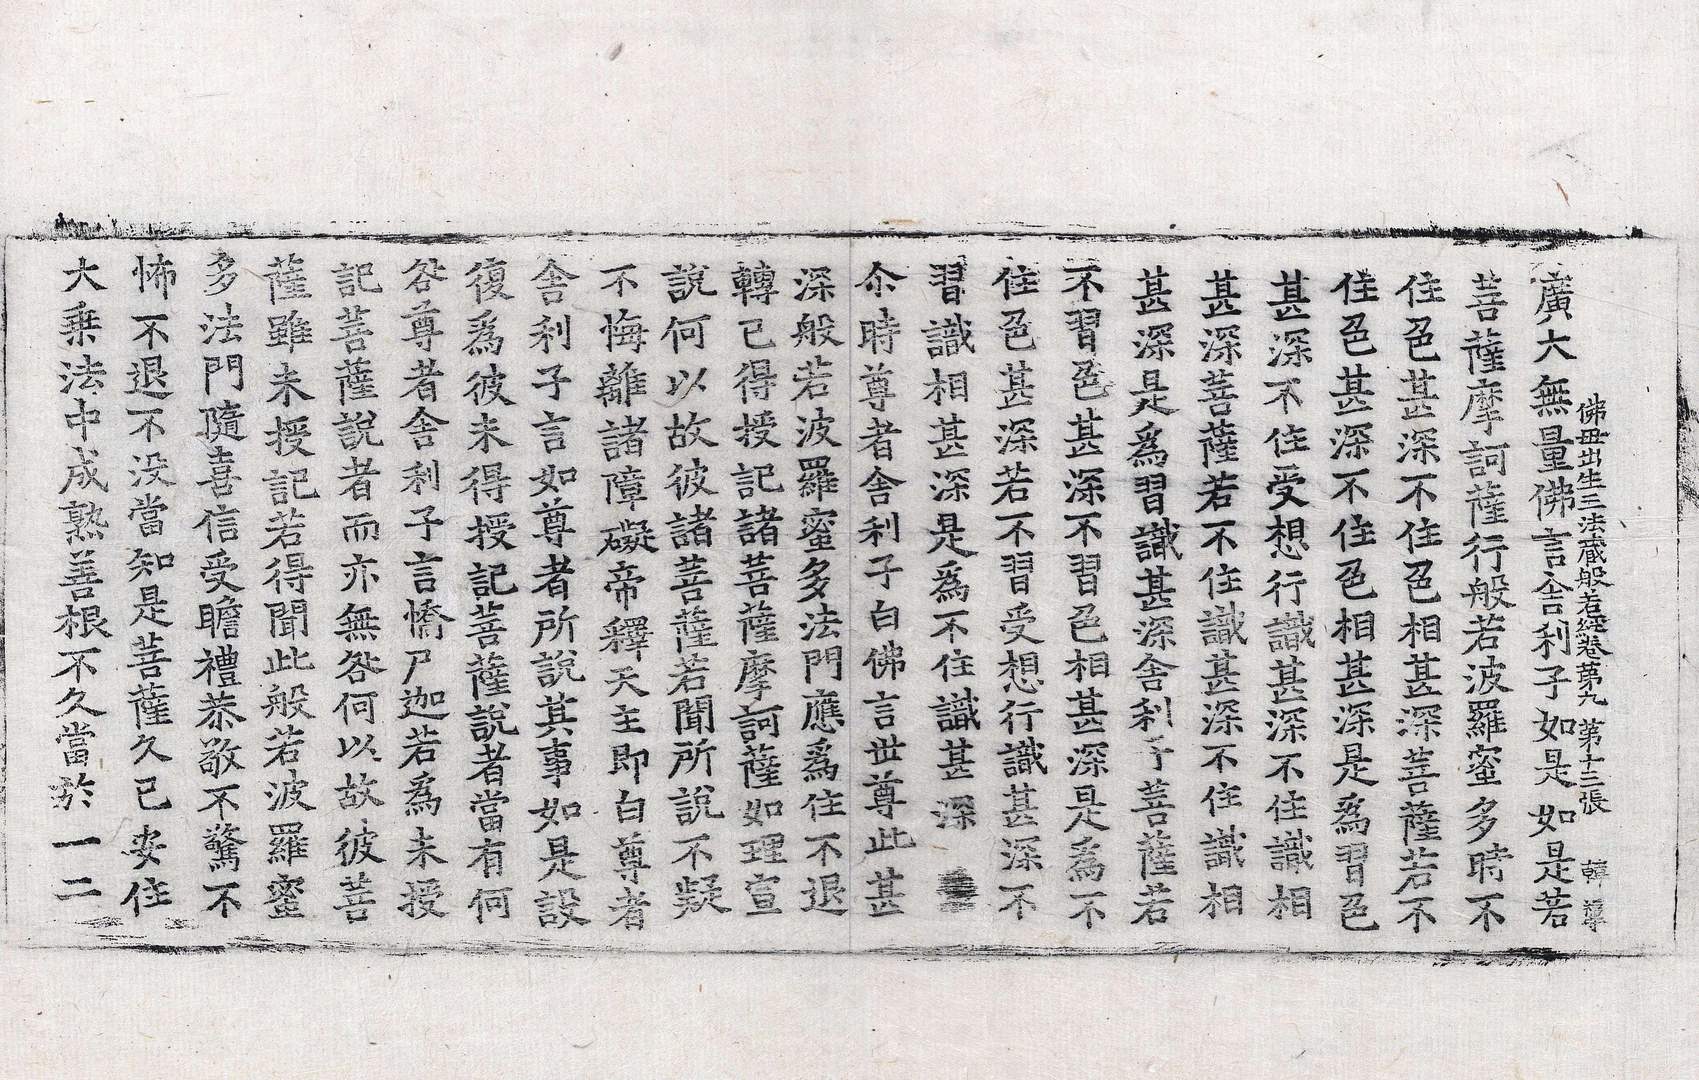 佛母出生三法藏般若經卷第九 第十三張 韓準
廣大無量佛言舍利子如是如是若
菩薩摩訶薩行般若波羅蜜多時不
住色甚深不住色相甚深菩薩若不
住色甚深不住色相甚深是爲習色
甚深不住受想行識甚深不住識相
甚深菩薩若不住識甚深不住識相
甚深是爲習識甚深舍利子菩薩若
不習色甚深不習色相甚深是爲不
住色甚深若不習受想行識甚深不
習識相甚深是爲不住識甚深
尒時尊者舍利子白佛言世尊此甚
深般若波羅蜜多法門應爲住不退
轉已得授記諸菩薩摩訶薩如理宣
說何以故彼諸菩薩若聞所說不疑
不悔離諸障礙帝釋天主即白尊者
舍利子言如尊者所說其事如是設
復爲彼未得授記菩薩說者當有何
咎尊者舍利子言憍尸迦若爲未授
記菩薩說者而亦無咎何以故彼菩
薩雖未授記若得聞此般若波羅蜜
多法門隨喜信受瞻禮恭敬不驚不
怖不退不没當知是菩薩久已安住
大乗法中成熟善根不久當於一二